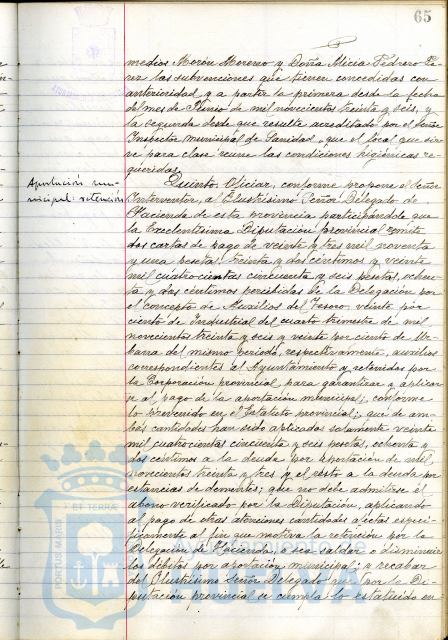 65
medios Morón Moreno y Doña Alicia Pedrero Pé-
rez las subvenciones que tienen concedidas con
anterioridad y a partir la primera desde la fecha
del mes de Junio de mil novecientos treinta y seis, y
la segunda desde que resulte acreditado por el Señor
Inspector municipal de Sanidad, que el local que sir-
ve para clase reune las condiciones higiénicas re-
queridas.
Aportación mu-
nicipal: retención
Quinto. Oficiar, conforme propone el Señor
Interventor, al Ilustrísimo Señor Delegado de
Hacienda de esta provincia participándole que
la Excelentísima Diputación provincial remite
dos cartas de pago de veinte y tres mil noventa
y una pesetas treinta y dos céntimos y veinte
mil cuatrocientas cincuenta y seis pesetas, ochen-
ta y dos céntimos percibidas de la Delegación por
el concepto de Auxilios del Tesoro veinte por
ciento de Industrial del cuarto trimestre de mil
novecientos treinta y seis y veinte por ciento de Ur-
bana del mismo periodo, respectivamente, auxilios
correspondientes al Ayuntamiento y retenidos por
la Corporación provincial para garantizar y aplicar-
se al pago de la aportación municipal, conforme
lo prevenido en el Estatuto provincial; que de am-
bas cantidades han sido aplicadas solamente veinte
mil cuatrocientas cincuenta y seis pesetas, ochenta y
dos céntimos a la deuda por aportación de mil
novecientos treinta y tres y el resto a la deuda por
estancias de dementes; que no debe admitirse el
abono verificado por la Diputación, aplicando
al pago de otras atenciones cantidades afectas especí-
ficamente al fin que motiva la retención por la
Delegación de Hacienda, o sea, saldar o disminuir
los débitos por aportación municipal; y recabar
del Ilustrísimo Señor Delegado que por la Di-
putación provincial se cumpla lo estatuido en